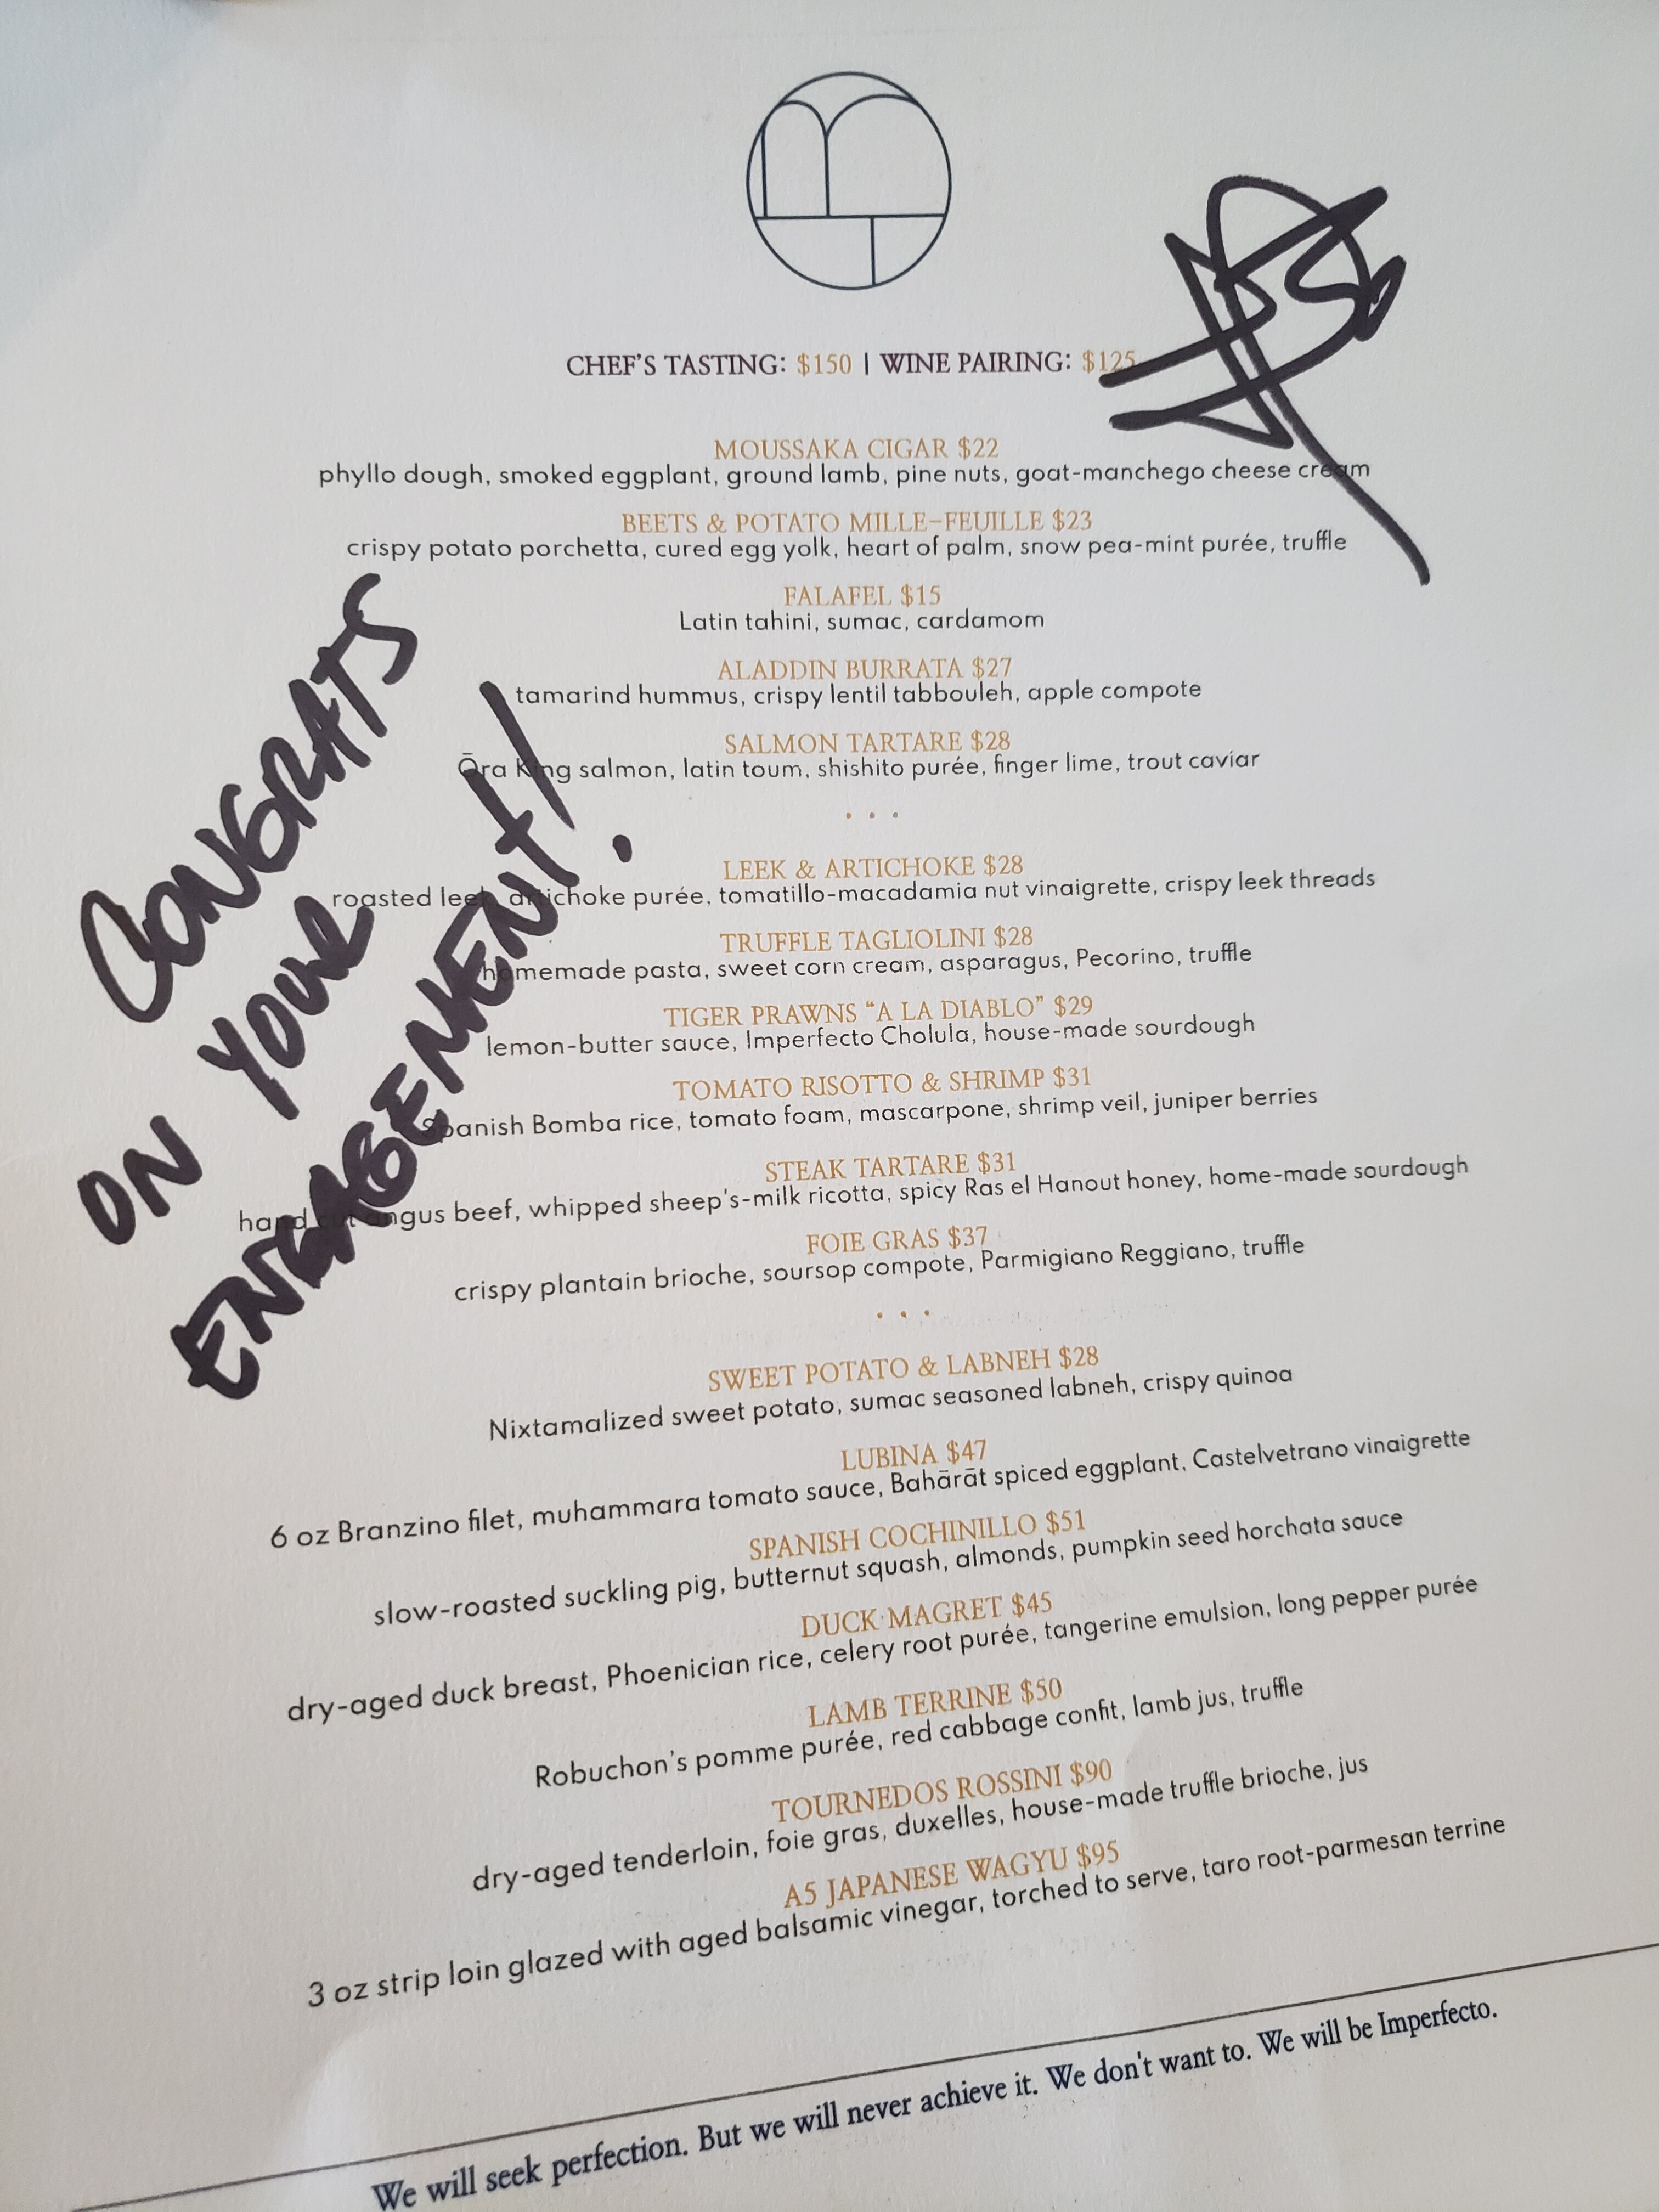 CHEF'S TASTING: $150 | WINE PAIRING: $125
MOUSSAKA CIGAR $22
phyllo dough, smoked eggplant, ground lamb, pine nuts, goat-manchego cheese cream
BEETS & POTATO MILLE-FEUILLE $23
crispy potato porchetta, cured egg yolk, heart of palm, snow pea-mint purée, truffle
FALAFEL $15
Latin tahini, sumac, cardamom
ALADDIN BURRATA $27
tamarind hummus, crispy lentil tabbouleh, apple compote
SALMON TARTARE $28
Ōra King salmon, latin toum, shishito purée, finger lime, trout caviar
LEEK & ARTICHOKE $28
roasted leek, artichoke purée, tomatillo-macadamia nut vinaigrette, crispy leek threads
TRUFFLE TAGLIOLINI $28
homemade pasta, sweet corn cream, asparagus, Pecorino, truffle
TIGER PRAWNS “A LA DIABLO” $29
lemon-butter sauce, Imperfecto Cholula, house-made sourdough
TOMATO RISOTTO & SHRIMP $31
Spanish Bomba rice, tomato foam, mascarpone, shrimp veil, juniper berries
STEAK TARTARE $31
hand cut angus beef, whipped sheep's-milk ricotta, spicy Ras el Hanout honey, home-made sourdough
FOIE GRAS $37
crispy plantain brioche, soursop compote, Parmigiano Reggiano, truffle
SWEET POTATO & LABNEH $28
Nixtamalized sweet potato, sumac seasoned labneh, crispy quinoa
LUBINA $47
6 oz Branzino filet, muhammara tomato sauce, Bahārāt spiced eggplant, Castelvetrano vinaigrette
SPANISH COCHINILLO $51
slow-roasted suckling pig, butternut squash, almonds, pumpkin seed horchata sauce
DUCK MAGRET $45
dry-aged duck breast, Phoenician rice, celery root purée, tangerine emulsion, long pepper purée
LAMB TERRINE $50
Robuchon's pomme purée, red cabbage confit, lamb jus, truffle
TOURNEDOS ROSSINI $90
dry-aged tenderloin, foie gras, duxelles, house-made truffle brioche, jus
A5 JAPANESE WAGYU $95
3 oz strip loin glazed with aged balsamic vinegar, torched to serve, taro root-parmesan terrine
We will seek perfection. But we will never achieve it. We don't want to. We will be Imperfecto.
CONGRATS
ON YOUR
ENGAGEMENT!